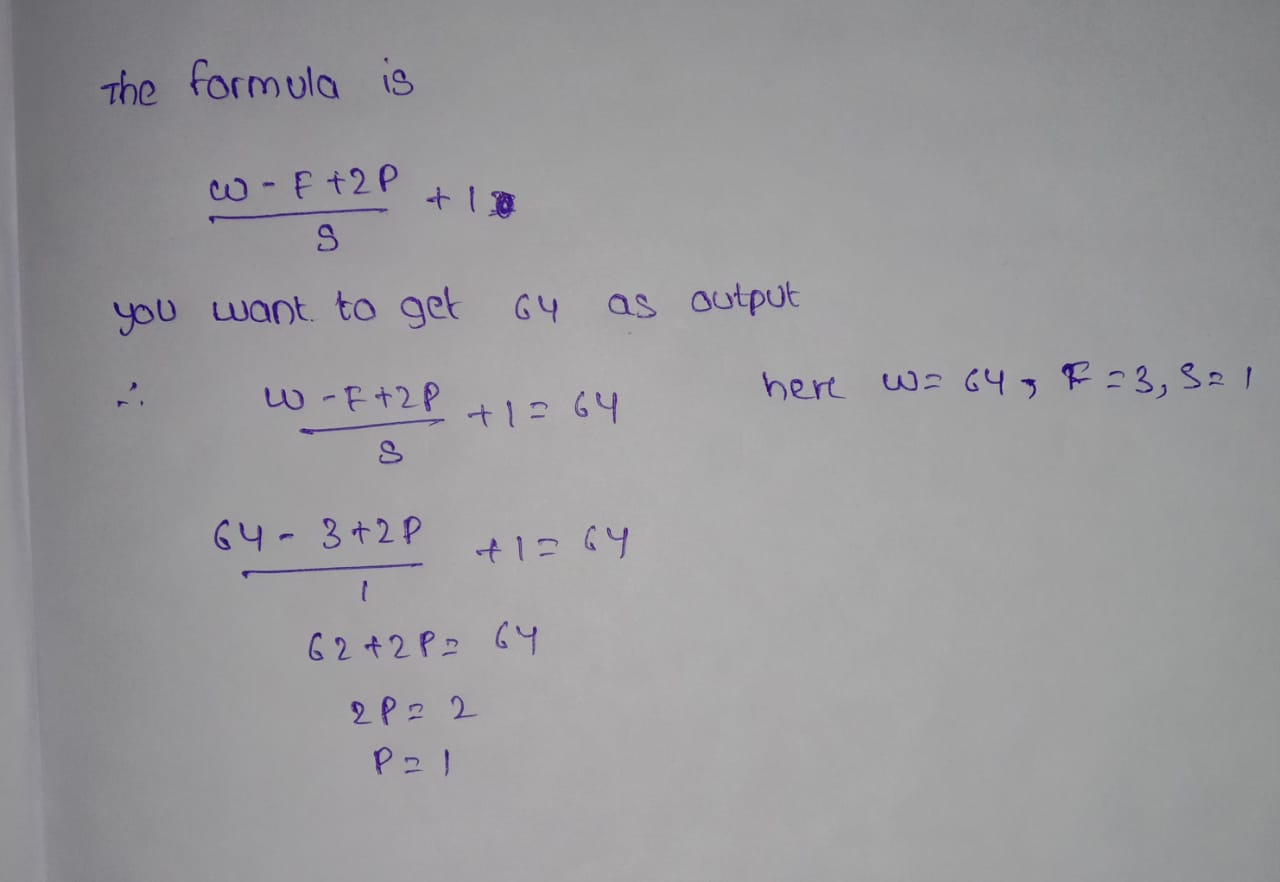 The formula is
W - F + 2P / S + 1
you want to get 64 as output
∴ W - F + 2P / S + 1 = 64 here W = 64, F = 3, S = 1
64 - 3 + 2P / 1 + 1 = 64
62 + 2P = 64
2P = 2
P = 1